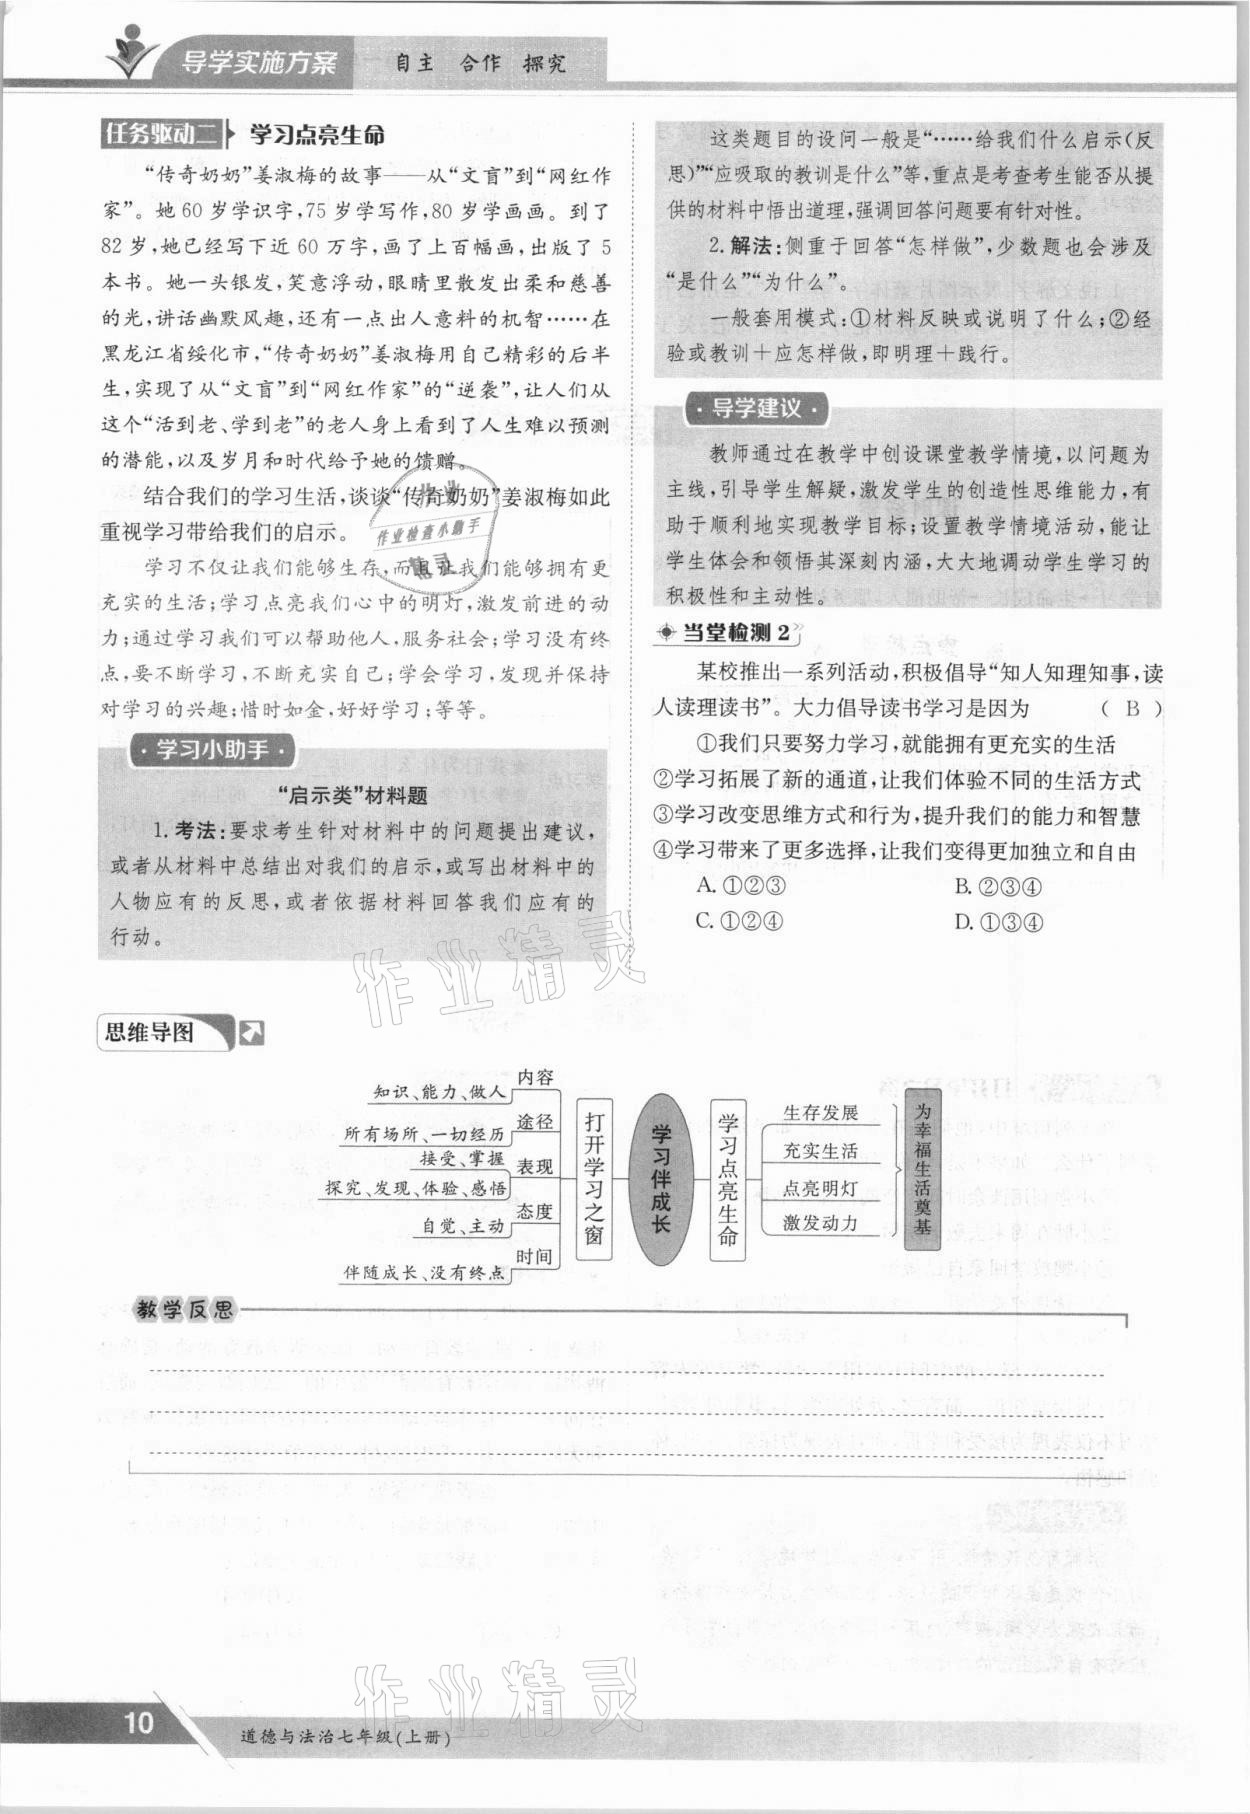 导学实施方案
自主 合作 探究
任务驱动二 学习点亮生命
“传奇奶奶”姜淑梅的故事——从“文盲”到“网红作
家”。她 60 岁学识字,75 岁学写作,80 岁学画画。到了
82 岁,她已经写下近 60 万字,画了上百幅画,出版了 5
本书。她一头银发,笑意浮动,眼睛里散发出柔和慈善
的光,讲话幽默风趣,还有一点出人意料的机智……在
黑龙江省绥化市,“传奇奶奶”姜淑梅用自己精彩的后半
生,实现了从“文盲”到“网红作家”的“逆袭”,让人们从
这个“活到老、学到老”的老人身上看到了人生难以预测
的潜能,以及岁月和时代给予她的馈赠。
结合我们的学习生活,谈谈“传奇奶奶”姜淑梅如此
重视学习带给我们的启示。
学习不仅让我们能够生存,而且让我们能够拥有更
充实的生活;学习点亮我们心中的明灯,激发前进的动
力;通过学习我们可以帮助他人,服务社会;学习没有终
点,要不断学习、不断充实自己;学会学习,发现并保持
对学习的兴趣;惜时如金,好好学习;等等。
·学习小助手·
“启示类”材料题
1. 考法:要求考生针对材料中的问题提出建议,
或者从材料中总结出对我们的启示,或写出材料中的
人物应有的反思,或者依据材料回答我们应有的
行动。
这类题目的设问一般是“……给我们什么启示(反
思)”“应吸取的教训是什么”等,重点是考查考生能否从提
供的材料中悟出道理,强调回答问题要有针对性。
2. 解法:侧重于回答“怎样做”,少数题也会涉及
“是什么”“为什么”。
一般套用模式:①材料反映或说明了什么;②经
验或教训＋应怎样做,即明理＋践行。
·导学建议·
教师通过在教学中创设课堂教学情境,以问题为
主线,引导学生解疑,激发学生的创造性思维能力,有
助于顺利地实现教学目标;设置教学情境活动,能让
学生体会和领悟其深刻内涵,大大地调动学生学习的
积极性和主动性。
当堂检测 2
某校推出一系列活动,积极倡导“知人知理知事,读
人读理读书”。大力倡导读书学习是因为 ( B )
①我们只要努力学习,就能拥有更充实的生活
②学习拓展了新的通道,让我们体验不同的生活方式
③学习改变思维方式和行为,提升我们的能力和智慧
④学习带来了更多选择,让我们变得更加独立和自由
A. ①②③ B. ②③④
C. ①②④ D. ①③④
作业
作业检查小助手
慧灵
作业精灵
思维导图
知识、能力、做人 内容
所有场所、一切经历 途径
接受、掌握 表现
探究、发现、体验、感悟
自觉、主动 态度
伴随成长、没有终点 时间
打开学习之窗
学习伴成长
学习点亮生命
生存发展
充实生活
点亮明灯
激发动力
为幸福生活奠基
教学反思
作业精灵
10
道德与法治七年级(上册)